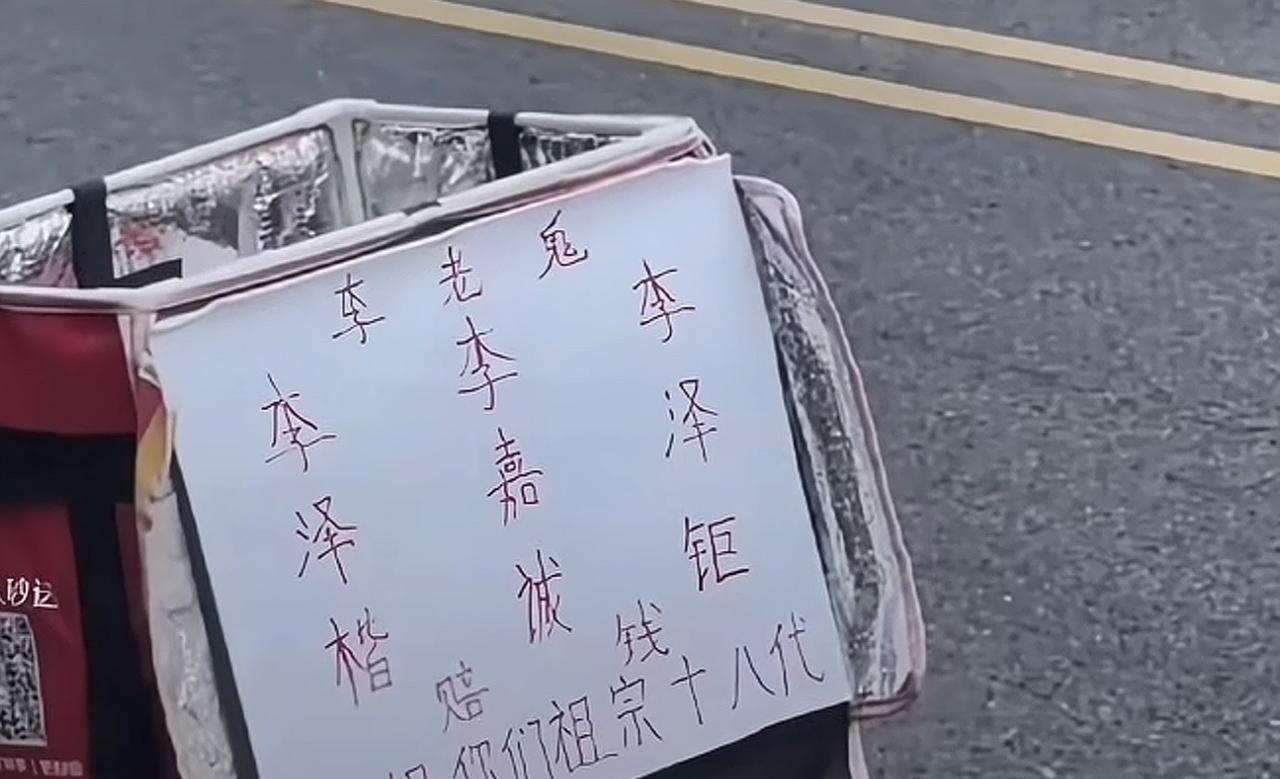 李老鬼
李泽楷
李嘉诚
李泽钜
赔钱
你们祖宗十八代